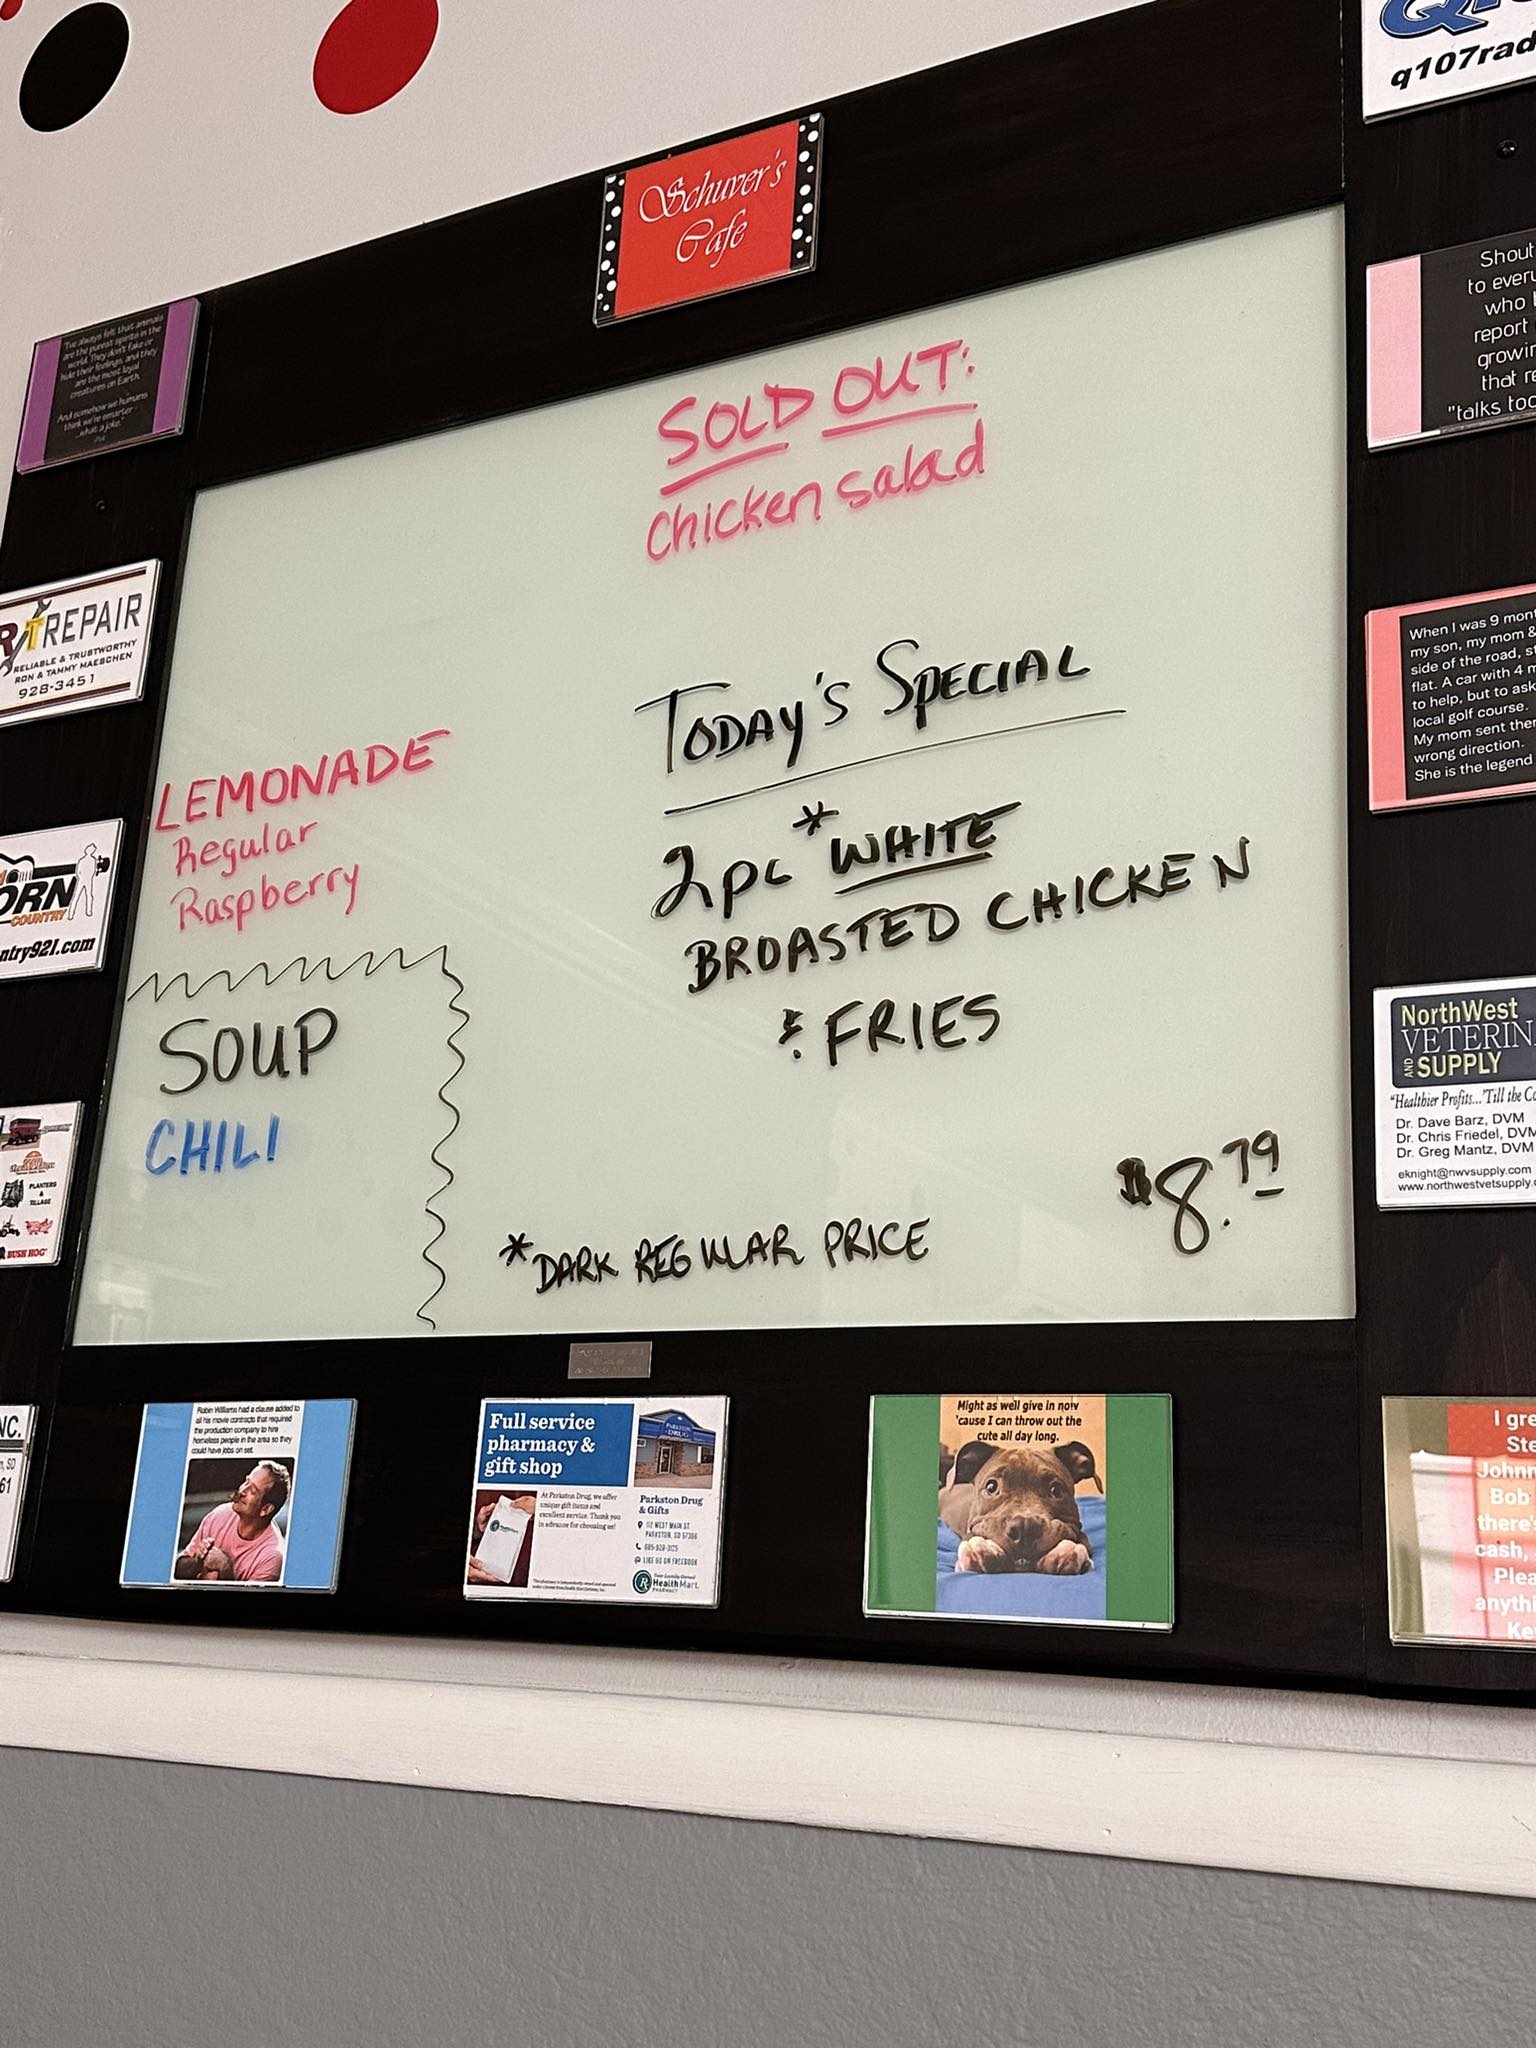 Schuver's
Cafe
"I've always felt that animals
are the purest spirits in the
world. They don't fake or
hide their feelings, and they
are the most loyal
creatures on Earth.
And somehow we humans
think we're smarter
...what a joke."
REPAIR
RELIABLE & TRUSTWORTHY
RON & TAMMY MAESCHEN
928-3451
ORN
COUNTRY
ntry921.com
PLANTERS
&
TILLAGE
BUSH HOG
NC.
, SD
61
SOLD OUT:
Chicken salad
LEMONADE
Regular
Raspberry
SOUP
CHILI
TODAY'S SPECIAL
2pc *WHITE
BROASTED CHICKEN
& FRIES
$8.79
*DARK REGULAR PRICE
q107rad
Shout
to every
who
report
growin
that re
"talks too
When I was 9 mont
my son, my mom &
side of the road, st
flat. A car with 4 m
to help, but to ask
local golf course.
My mom sent them
wrong direction.
She is the legend
NorthWest
VETERIN
AND SUPPLY
"Healthier Profits...'Till the Co
Dr. Dave Barz, DVM
Dr. Chris Friedel, DVM
Dr. Greg Mantz, DVM
eknight@nwvsupply.com
www.northwestvetsupply.c
Robin Williams had a clause added to
all his movie contracts that required
the production company to hire
homeless people in the area so they
could have jobs on set.
Full service
pharmacy &
gift shop
PARKSTON
DRUG
At Parkston Drug, we offer
unique gift items and
excellent service. Thank you
in advance for choosing us!
Parkston Drug
& Gifts
112 WEST MAIN ST.
PARKSTON, SD 57366
605-928-3125
LIKE US ON FACEBOOK
Your Locally Owned
HealthMart
PHARMACY
Might as well give in now
'cause I can throw out the
cute all day long.
I gre
Ste
Johnn
Bob
there's
cash,
Plea
anythi
Ke